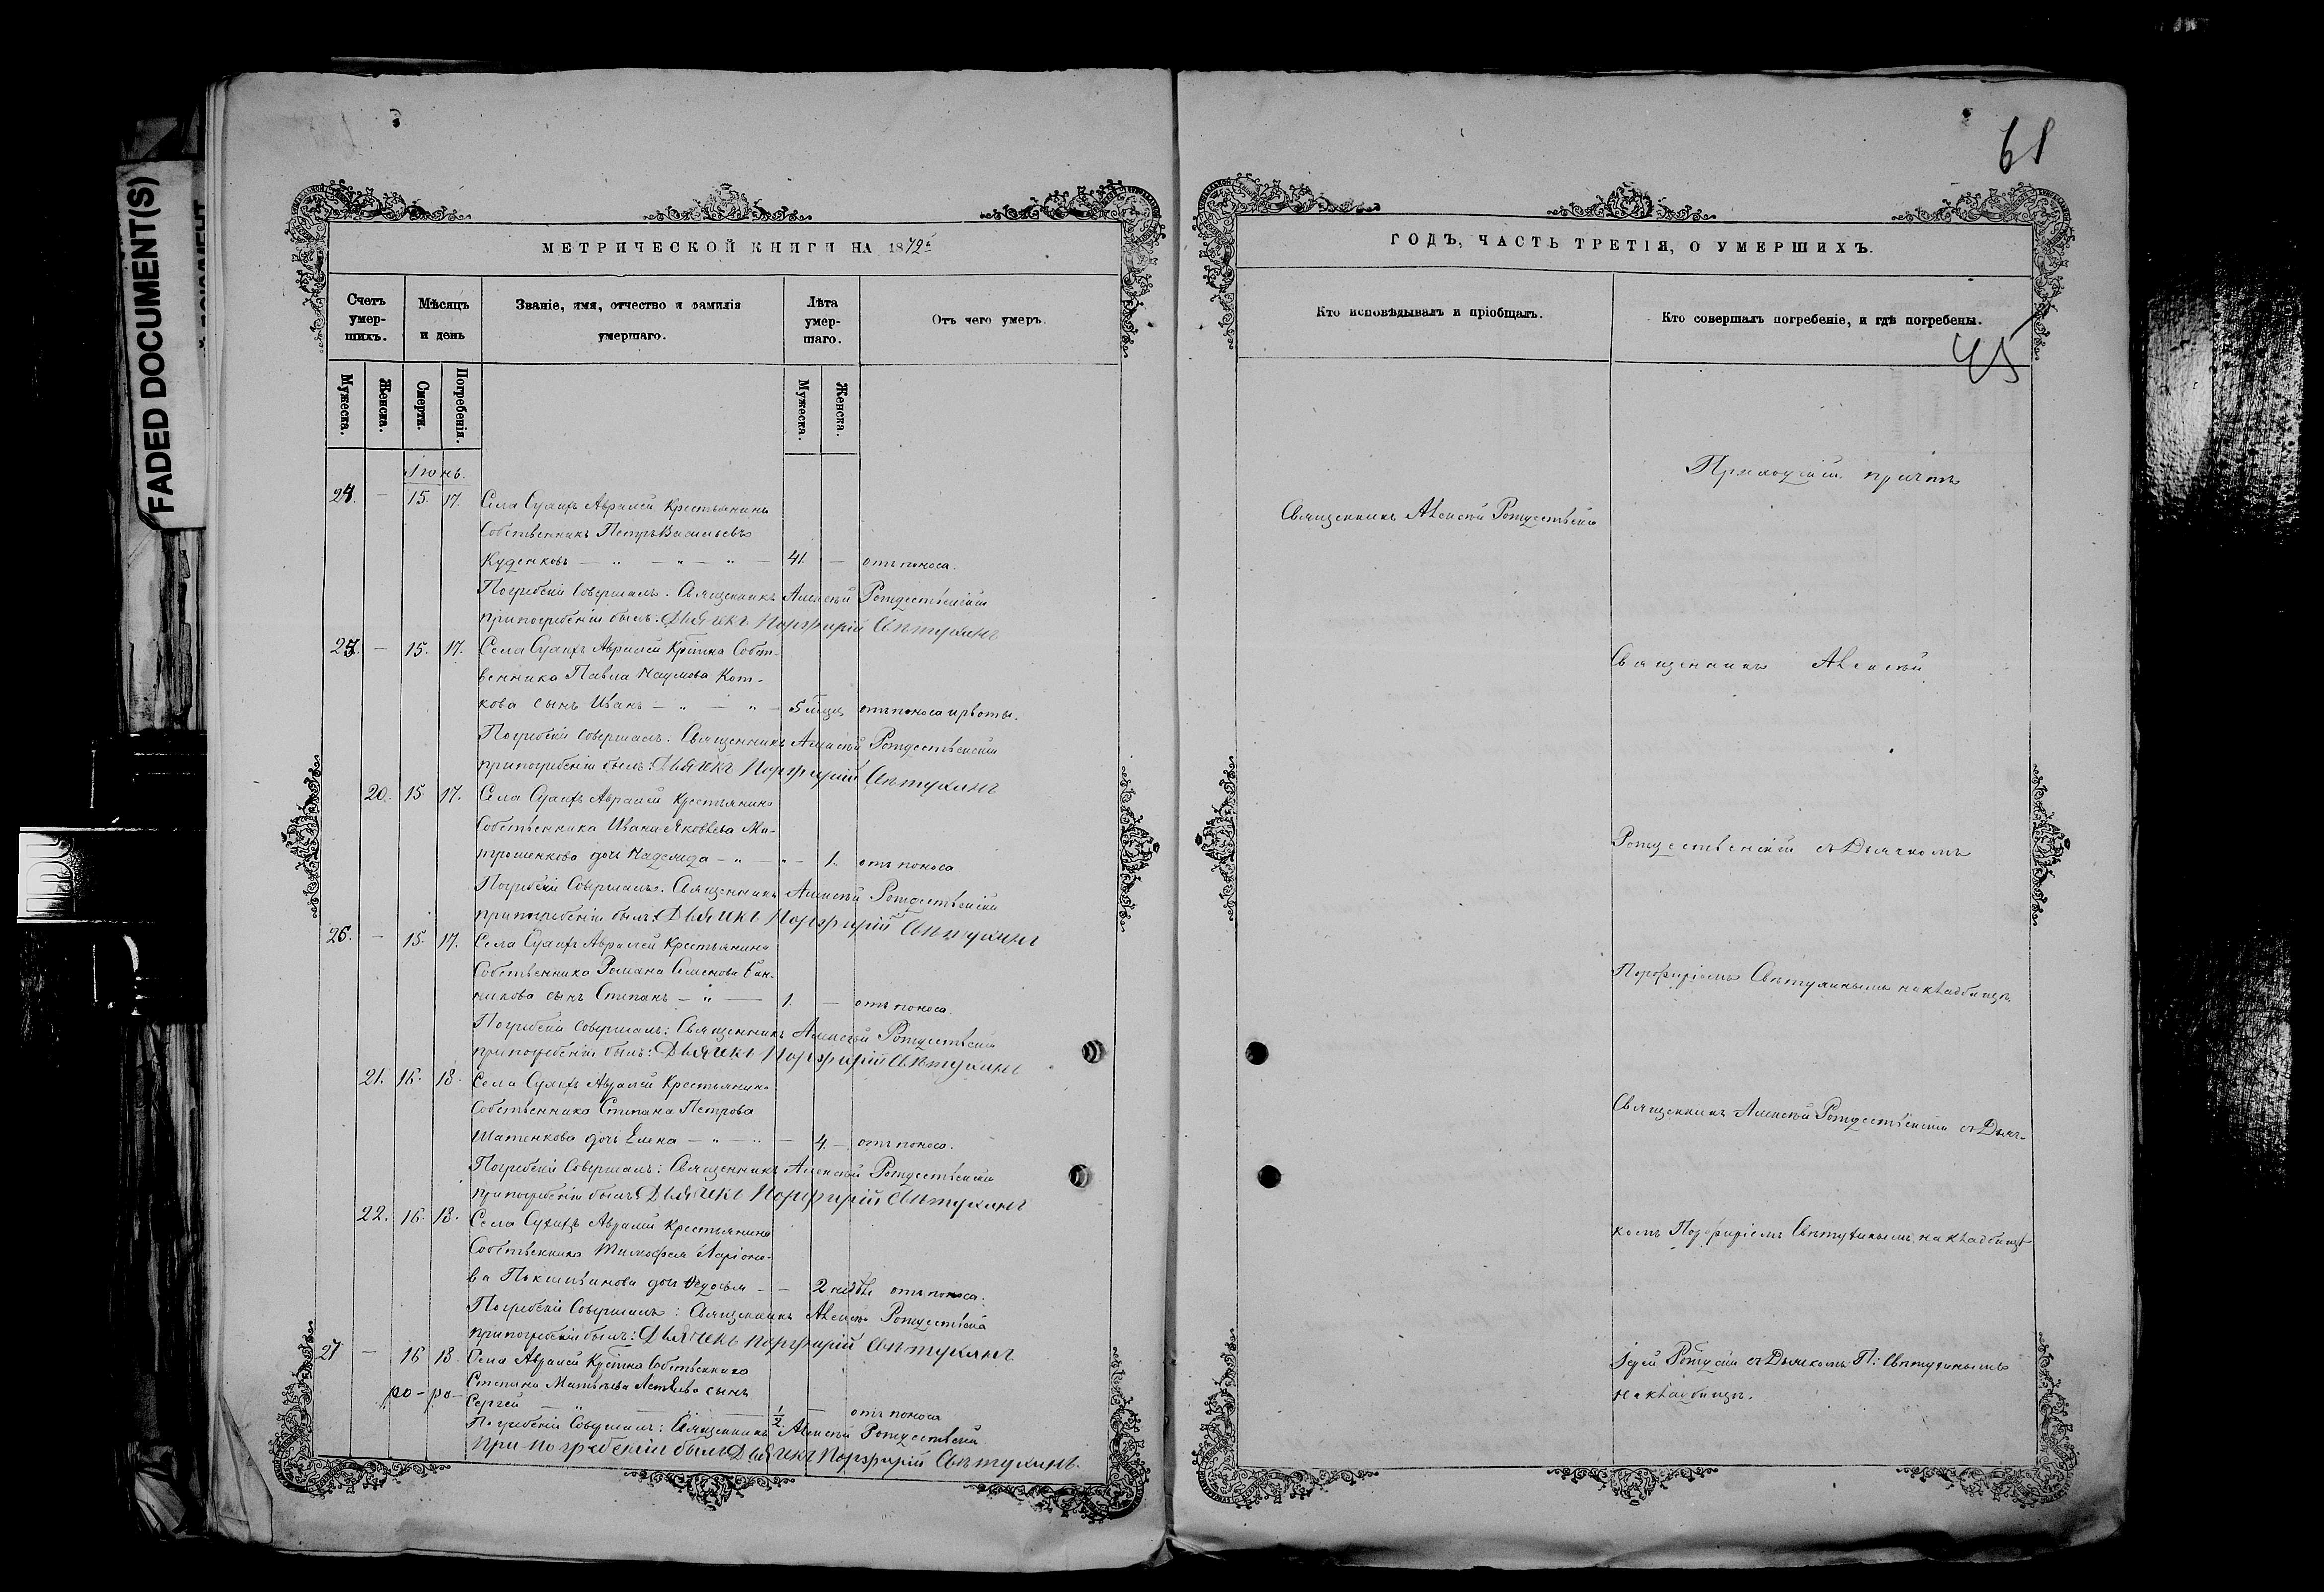 FADED DOCUMENT(S)
61
МЕТРИЧЕСКОЙ КНИГИ НА 1872
Счетъ умер-шихъ.
Мѣсяцъ и день
Званіе, имя, отчество и фамилія умершаго.
Лѣта умер-шаго.
Отъ чего умеръ.
Мужеска.
Женска.
Смерти.
Погребенія.
Мужеска.
Женска.
Іюнь.
24. — 15. 17. Села Сухихъ Авралей Крестьянинъ
Собственникъ Петръ Васильевъ
Куденковъ — „ — „ — „ — 41. — отъ поноса.
Погребеніе Совершалъ: Священникъ Алексѣй Рождественскій
при погребеніи былъ: Дьячекъ Порфирій
25. — 15. 17. Села Сухихъ Авралей Собст-
венника Павла Наумова Кот-
кова сынъ Иванъ — „ — „ — 5 отъ поноса и рвоты.
Погребеніе Совершалъ: Священникъ Алексѣй Рождественскій
при погребеніи былъ: Дьячекъ Порфирій
20. 15. 17. Села Сухихъ Авралей Крестьянина
Собственника Ивана Яковлева Ми-
трошенкова дочь Надежда — „ — „ — 1. отъ поноса
Погребеніе Совершалъ: Священникъ Алексѣй Рождественскій
при погребеніи былъ: Дьячекъ Порфирій
26. — 15. 17. Села Сухихъ Авралей Крестьянина
Собственника Романа Семенова
сынъ Степанъ — „ — 1. — отъ поноса.
Погребеніе Совершалъ: Священникъ Алексѣй Рождественскій
при погребеніи былъ: Дьячекъ Порфирій
21. 16. 18. Села Сухихъ Авралей Крестьянина
Собственника Степана Петрова
Шатенкова дочь Елена — „ — „ — 4 — отъ поноса.
Погребеніе Совершалъ: Священникъ Алексѣй Рождественскій
при погребеніи былъ: Дьячекъ Порфирій
22. 16. 18. Села Сухихъ Авралей Крестьянина
Собственника Тимофея Ларіоно-
ва дочь — — 2 отъ поноса.
Погребеніе Совершалъ: Священникъ Алексѣй Рождественскій
при погребеніи былъ: Дьячекъ Порфирій
27 — 16 18. Села Авралей Собственника
Степана сынъ
Сергей — „ — 1/2 — отъ поноса
Погребеніе Совершалъ: Священникъ Алексѣй Рождественскій
При погребеніи былъ Дьячекъ Порфирій
ГОДЪ, ЧАСТЬ ТРЕТІЯ, О УМЕРШИХЪ.
Кто исповѣдывалъ и пріобщалъ.
Кто совершалъ погребеніе, и гдѣ погребены.
45
Приходскій причтъ
Священникъ Алексѣй Рождественскій
Священникъ Алексѣй
Рождественскій съ Дьячкомъ
Порфиріемъ на кладбищѣ
Священникъ Алексѣй Рождественскій съ Дьяч-
комъ Порфиріемъ на кладбищѣ
Іерей съ Дьячкомъ П:
на кладбищѣ.